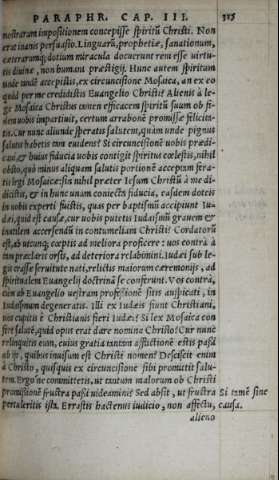 PARAPHR. CAP. III. 315
nostraram impositionem concepisse spiritũ Christi. Non
erat inanis persuasio. Linguarũ, prophetiæ, sanationum,
cæterarumq; dotium miracula docuerunt rem esse uirtu-
tis diuinæ, non humani præstigij. Hunc autem spiritum
unde accepistis, ex circuncisione Mosaica, an ex eo
quod per me credidistis Euangelio Christi? Alienis à le-
ge Mosaica Christus tamen efficacem spiritũ suum ob fi-
dem uobis impartiuit, certum arrabonẽ promissæ felicita-
tis. Cur nunc aliunde speratis salutem, quàm unde pignus
salutis habetis tam euidens? Si circuncisionẽ uobis prædi-
caui, & huius fiducia uobis contigit spiritus cœlestis, nihil
obsto, quò minus aliquam salutis portionẽ acceptam fera-
tis legi Mosaicæ: sin nihil præter Iesum Christũ à me di-
dicistis, & in hunc unum coniectis fiducia, easdem doteis
in uobis experti fuistis, quas per baptismũ accipiunt Iu-
dæi, quid est causæ, cur uobis putetis Iudaismũ grauem &
inutilem accersendũ in contumeliam Christi? Cordatorũ
est, ab utcunq; cœptis ad meliora proficere: uos contrà à
tam præclaris orsis, ad deteriora relabimini. Iudæi sub le-
gis crassæ seruitute nati, relictis maiorum cæremonijs, ad
spiritualem Euangelij doctrinã se conferunt. Vos contrà,
cum ab Euangelio uestram professionẽ sitis auspicati, in
Iudaismum degeneratis. Illi ex Iudæis fiunt Christiani,
uos cupitis è Christianis fieri Iudæi? Si lex Mosaica con-
fert salutẽ, quid opus erat dare nomina Christo? Cur nunc
relinquitis eum, cuius gratia tantum afflictionẽ estis passi
ab ijs, quibus inuisum est Christi nomen? Desciscit enim
à Christo, quisquis ex circuncisione sibi promittit salu-
tem. Ergo'ne committetis, ut tantum malorum ob Christi
promissionẽ frustra passi uideamini? Sed absit, ut frustra Si tamẽ sine
pertuleritis ista. Errastis hactenus iudicio, non affectu, causa.
alieno